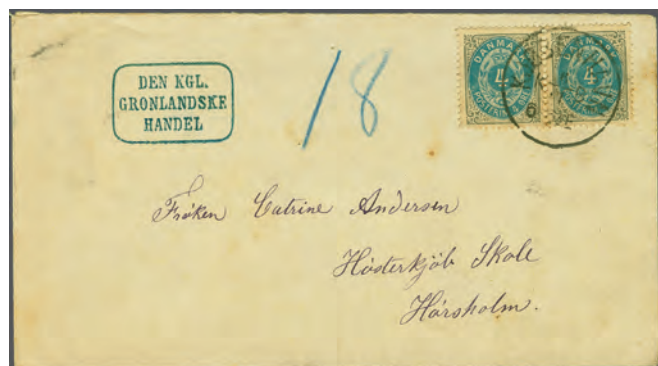 DEN KGL.
GRONLANDSKE
HANDEL
18
DANMARK
4
4
Frøken Catrine Andersen
Hösterkjöb Skole
Hörsholm.